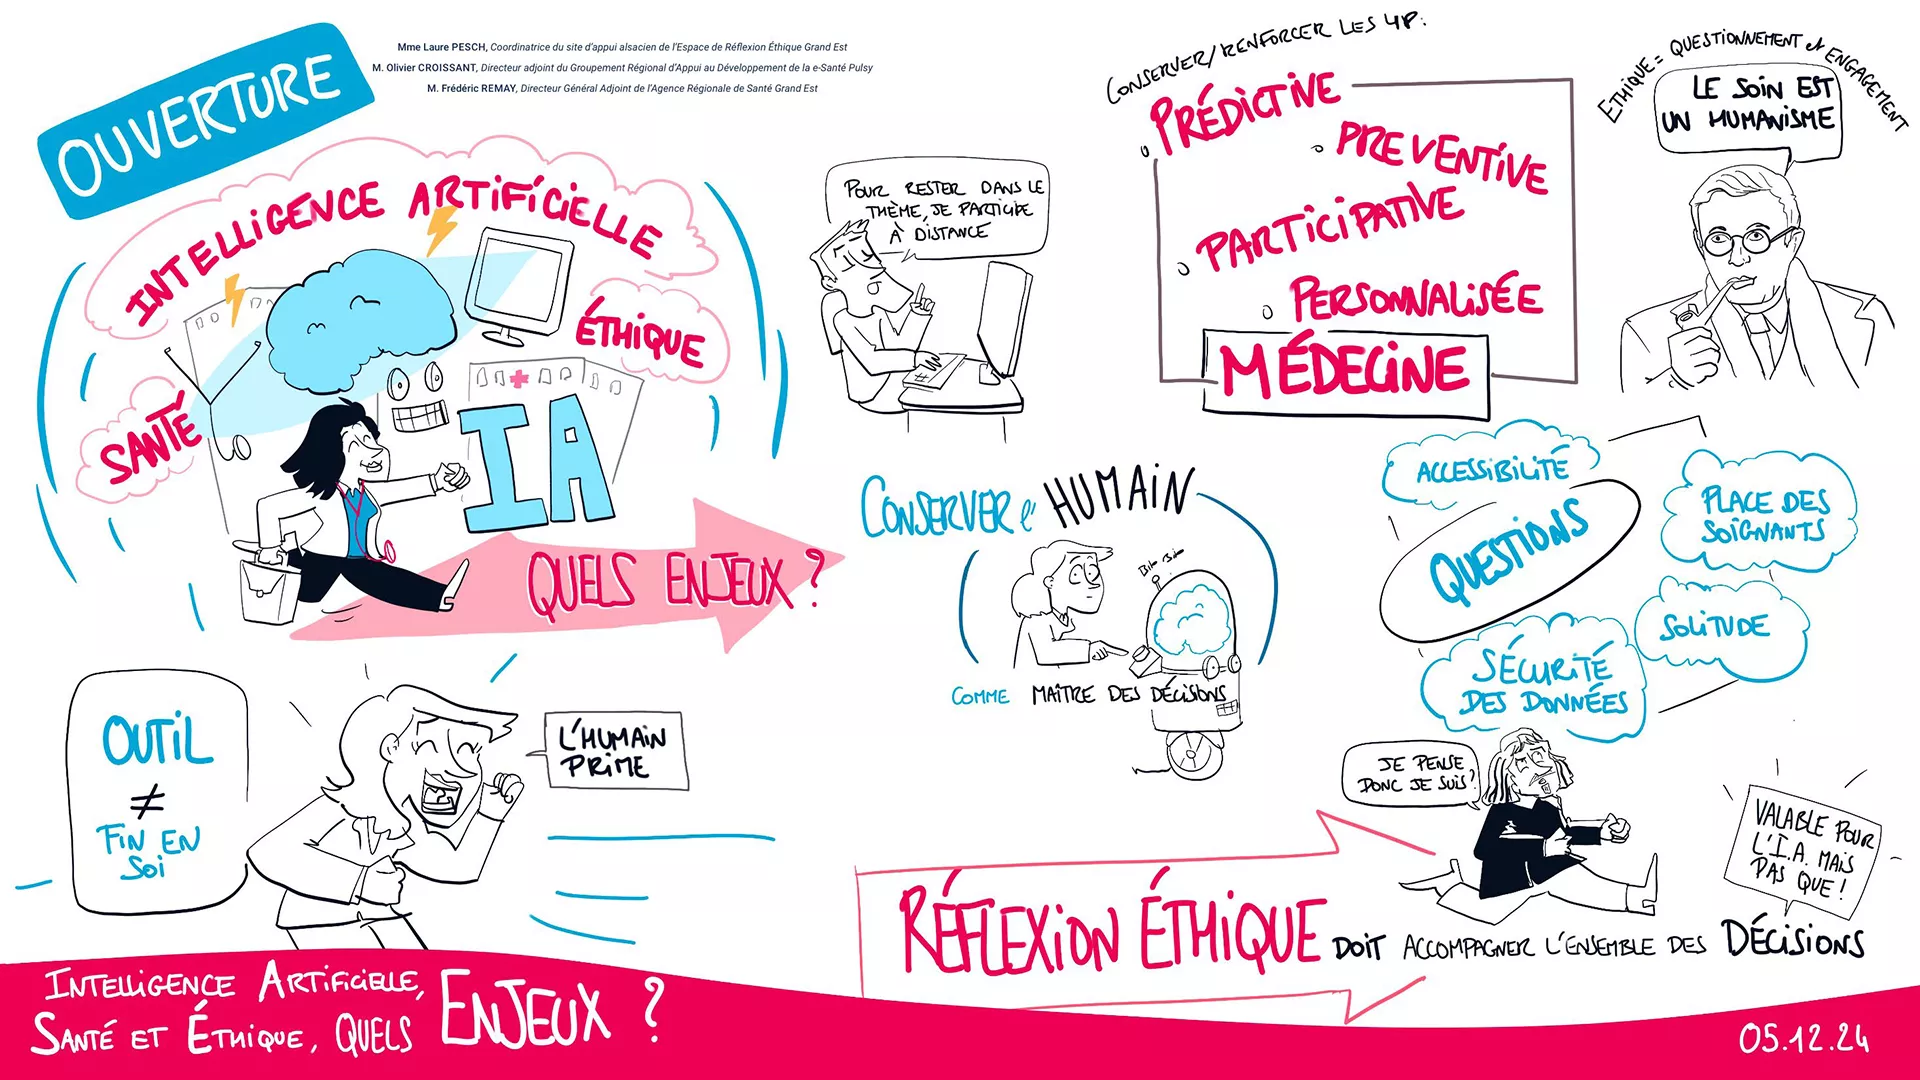 OUVERTURE
Mme Laure PESCH, Coordinatrice du site d'appui alsacien de l'Espace de Réflexion Éthique Grand Est
M. Olivier CROISSANT, Directeur adjoint du Groupement Régional d'Appui au Développement de la e-Santé Pulsy
M. Frédéric REMAY, Directeur Général Adjoint de l'Agence Régionale de Santé Grand Est
INTELLIGENCE ARTIFICIELLE
ÉTHIQUE
SANTÉ
IA
QUELS ENJEUX ?
POUR RESTER DANS LE
THÈME, JE PARTICIPE
À DISTANCE
CONSERVER/RENFORCER LES 4P:
PRÉDICTIVE
PREVENTIVE
PARTICIPATIVE
PERSONNALISÉE
MÉDECINE
ETHIQUE = QUESTIONNEMENT et ENGAGEMENT
LE SOIN EST
UN HUMANISME
CONSERVER l'HUMAIN
Bip Bip
COMME MAÎTRE DES DÉCISIONS
ACCESSIBILITÉ
QUESTIONS
PLACE DES
SOIGNANTS
SOLITUDE
SÉCURITÉ
DES DONNÉES
OUTIL
≠
FIN EN
SOI
L'HUMAIN
PRIME
JE PENSE
DONC JE SUIS?
VALABLE POUR
L'I.A. MAIS
PAS QUE !
RÉFLEXION ÉTHIQUE DOIT ACCOMPAGNER L'ENSEMBLE DES DÉCISIONS
INTELLIGENCE ARTIFICIELLE,
SANTÉ ET ÉTHIQUE, QUELS ENJEUX ?
05.12.24